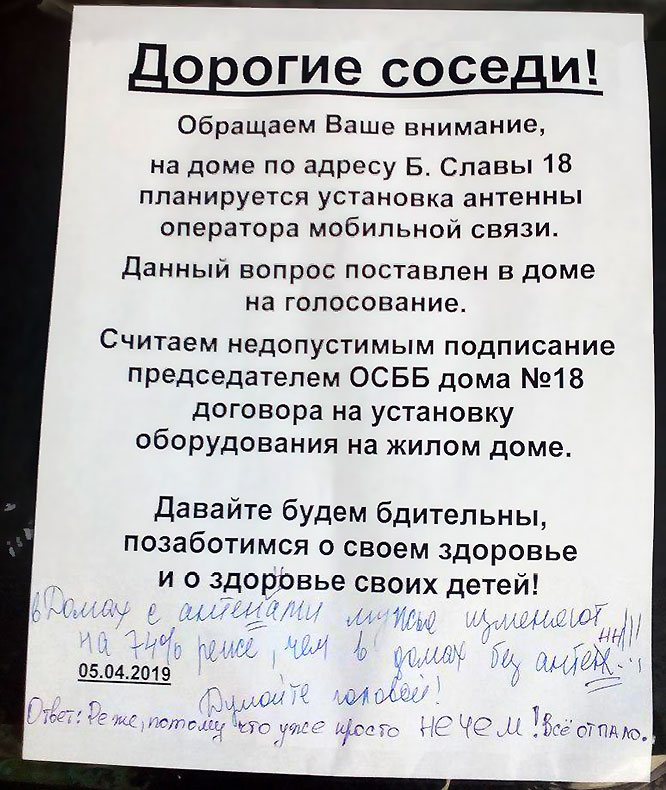 Дорогие соседи!
Обращаем Ваше внимание,
на доме по адресу Б. Славы 18
планируется установка антенны
оператора мобильной связи.
Данный вопрос поставлен в доме
на голосование.
Считаем недопустимым подписание
председателем ОСББ дома №18
договора на установку
оборудования на жилом доме.
Давайте будем бдительны,
позаботимся о своем здоровье
и о здоровье своих детей!
в Домах с антенами мужья изменяют
на 74% реже, чем в домах без антен...
НН!!!
05.04.2019
Думайте головой!
Ответ: Реже, потому что уже просто НЕЧЕМ! Всё отпало.